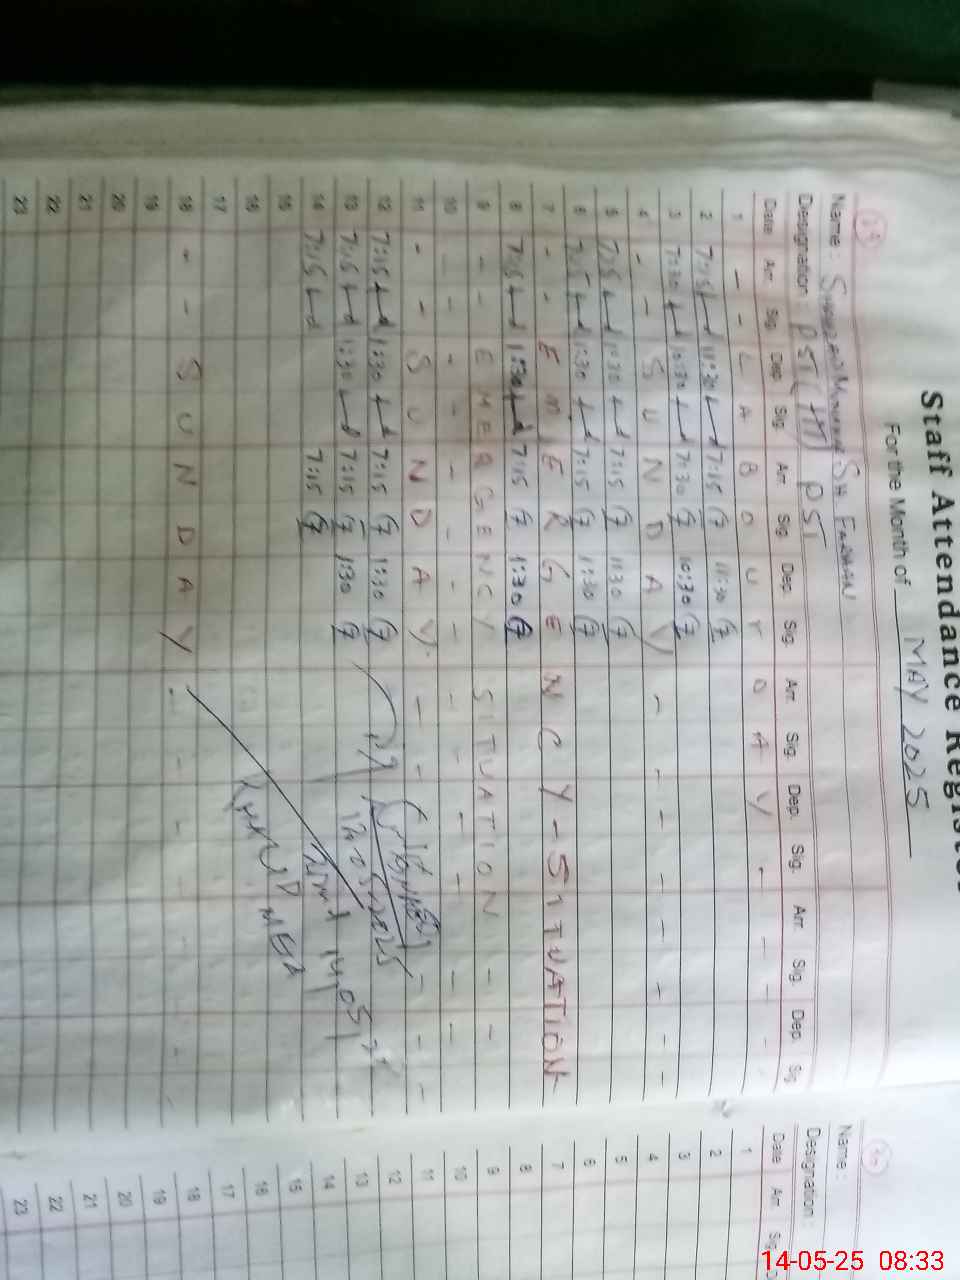 Staff Attendance Register
For the Month of MAY 2025
Name:
Designation: PST (HT) PST
Date Arr. Sig. Dep. Sig. Arr. Sig. Dep. Sig. Arr. Sig. Dep. Sig. Arr. Sig. Dep. Sig.
1 - - L A B O U R D A Y - - - -
2 7:15 11:30 7:15 11:30
3 7:30 10:30 7:30 10:30
4 - - S U N D A Y - - - - - - -
5 7:15 1:30 7:15 1:30
6 7:15 1:30 7:15 1:30
7 - - E M E R G E N C Y - SITUATION
8 7:15 1:30 7:15 1:30
9 - - E M E R G E N C Y SITUATION - -
10 - - - - - - - - - - -
11 - - S U N D A Y. - - - - -
12 7:15 1:30 7:15 1:30
13 7:15 1:30 7:15 1:30
14 7:15 7:15
15
16
17
18 - - S U N D A Y - - - - -
19
20
21
22
23
MEA
Name:
Designation:
Date Arr. Sig.
1
2
3
4
5
6
7
8
9
10
11
12
13
14
15
16
17
18
19
20
21
22
23
14-05-25 08:33